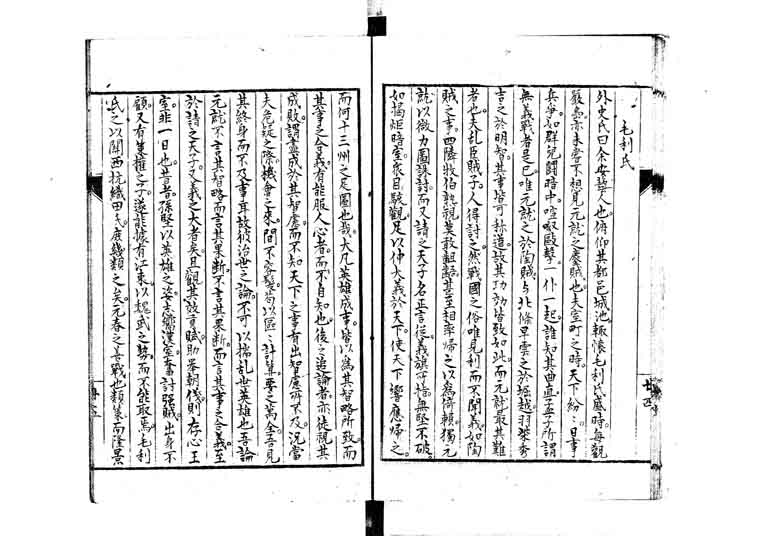 毛利氏
外史氏曰余安藝人也俯仰其都邑城池輒懷毛利氏盛時每觀
嚴島亦未嘗不想見元就之鏖賊也夫室町之時天下紛〻日事
兵爭如群兒鬪暗中喧呶毆擊一仆一起誰知其曲直孟子所謂
無義戰者是已唯元就之於陶賊與北條早雲之於堀越羽柴秀
吉之於明智其事皆可稱道故其功効皆致如此而元就最其難
者也夫乱臣賊子人得討之然戰國之俗唯見利而不聞義如陶
賊之事四隣牧伯熟視莫敢齟齬甚至相率帰之以為倚賴獨元
就以微力圖誅討而又請之天子名正言從義旗所指無堅不破
如揭炬時室衆目駭觀足以伸大義於天下使天下響應帰之
而何十三州之足圖也哉大凡英雄成事皆以為其智略所致而
其事之合義有能服人心者而不自知也後之追論者亦徒視其
成敗謂盡成於其智慮而不知天下之事有出智慮所不及況當
夫危疑之際機會之來間不容髮苟以區〻計算要之萬全吾見
其終身而不及事耳故彼治世之論不可以揣乱世英雄也吾論
元就不言其智略而言其果斷不言其果斷而言其事之合義至
於請之天子又義之大者矣且觀其效貢賦助舉朝儀則存心王
室非一日也昔者孫堅以英雄之姿志痛漢室奮討强賊出身不
顧又有策權之子遂能據有江東以魏武之勢而不能取焉毛利
氏之以關西抗織田氏庶幾類之矣元春之善戰也類策而隆景